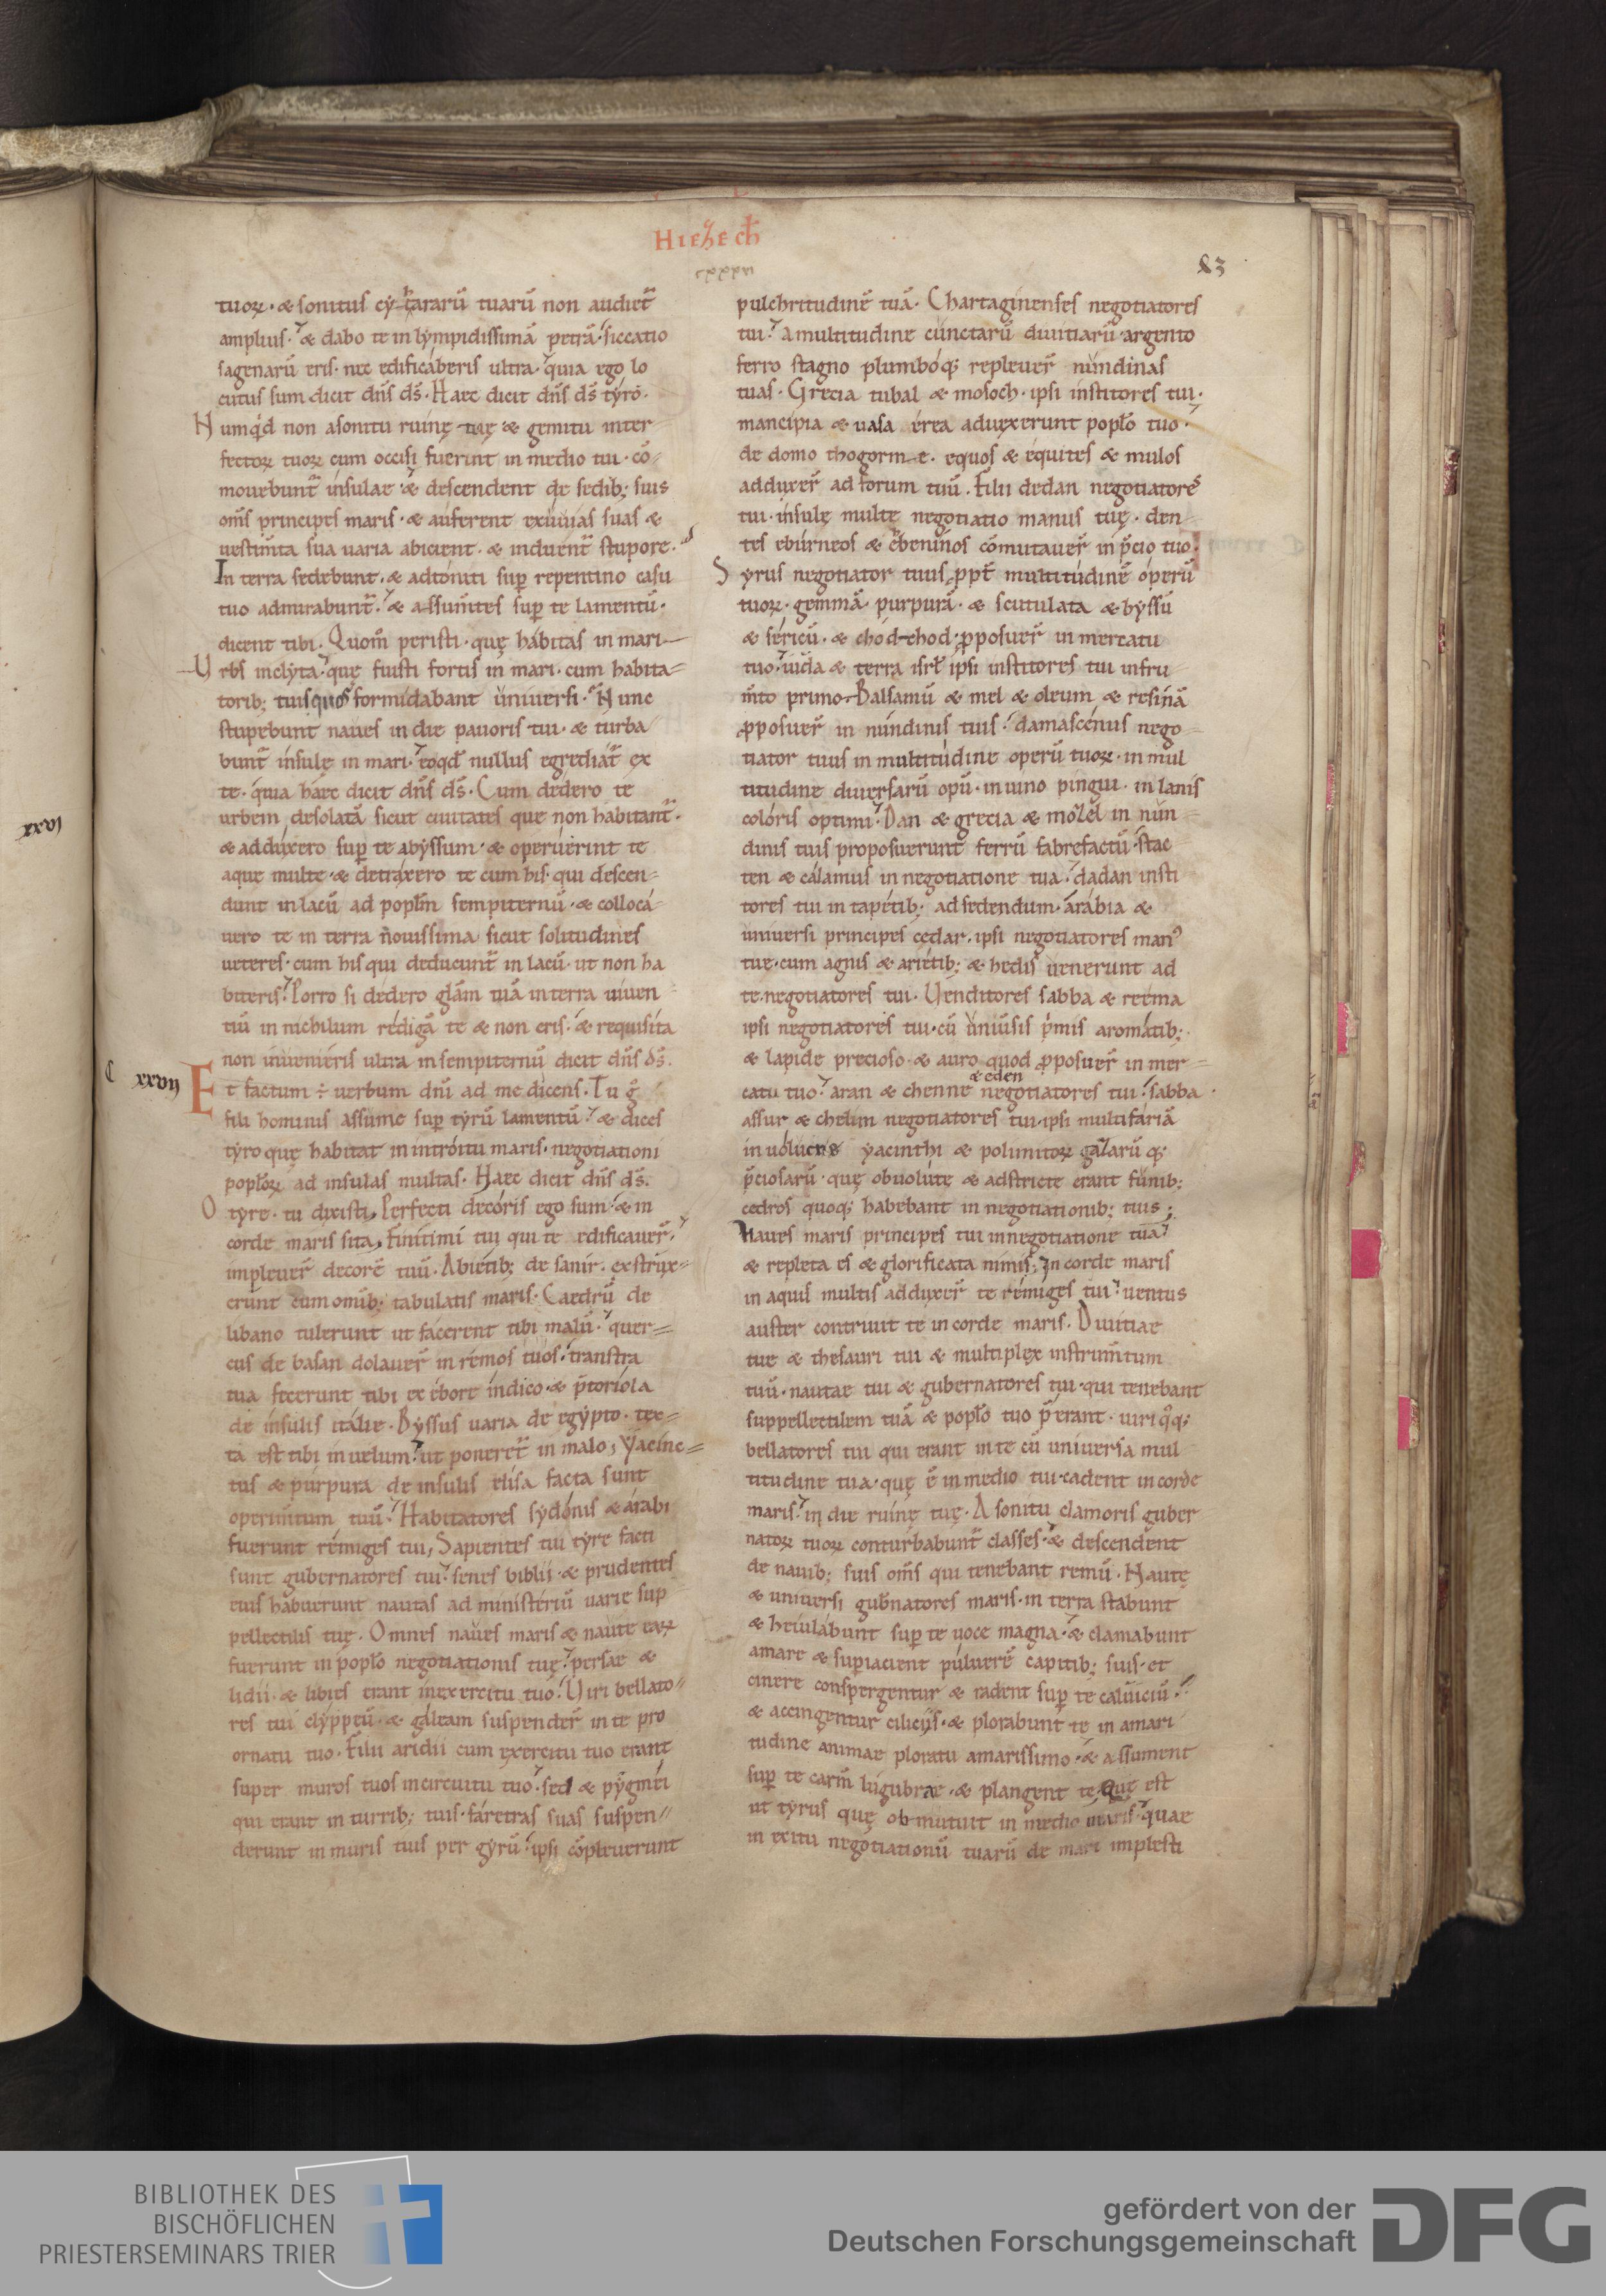 Hiezech
cxxxvi
83
tuoꝝ · & sonitus cytararū tuarū non audiet᷑
amplius · & dabo te in lympidissimā petrā · siccatio
sagenarū eris · nec edificaberis ultra · quia ego lo
cutus sum dicit dn̄s ds̄ · Haec dicit dn̄s ds̄ tyro ·
Numq'd non a sonitu ruinę tuę & gemitu inter-
fectoꝝ tuoꝝ cum occisi fuerint in medio tui · cō-
mouebunt᷑ insulae · & descendent de sedib; suis
om̄s principes maris · & auferent exuuias suas &
uestim̄ta sua uaria abicient · & induent᷑ stupore ·
In terra sedebunt · & adtoniti sup̄ repentino casu
tuo admirabunt᷑ · & assum̄tes sup̄ te lamentū ·
dicent tibi · Quom̄ peristi · quę habitas in mari
Urbs inclyta · quę fuisti fortis in mari · cum habita-
torib; tuis quos formidabant uniuersi · Nunc
stupebunt naues in die pauoris tui · & turba-
bunt᷑ insulę in mari · eoqd̄ nullus egrediat᷑ ex
te · quia haec dicit dn̄s ds̄ · Cum dedero te
urbem desolatā sicut ciuitates que non habitant᷑ ·
& adduxero sup̄ te abyssum · & operuerint te
aque multe · & detraxero te cum his · qui descen-
dunt in lacū ad popl̄m sempiternū · & colloca-
uero te in terra nouissima sicut solitudines
ueteres · cum his qui deducunt᷑ in lacū · ut non ha
biteris · Porro si dedero glām tuā in terra uiuen-
tiū in nichilum redigā te & non eris · & requisita
non inuenieris ultra in sempiternū dicit dn̄s ds̄ ·
xxvii Et factum ÷ uerbum dn̄i ad me dicens · Tu g̊
fili hominis assume sup̄ tyrū lamentū · & dices
tyro quę habitat in introitu maris · negotiationi
popl̄oꝝ ad insulas multas · Haec dicit dn̄s ds̄ ·
O tyre · tu dixisti · Perfecti decoris ego sum · & in
corde maris sita · Finitimi tui qui te edificauer̄ ·
impleuer̄ decorē tuū · Abietib; de sanir · exstrux-
erunt cum omīb; tabulatis maris · Caedrū de
libano tulerunt ut facerent tibi malū · quer-
cus de basan dolauer̄ in remos tuos · transtra
tua fecerunt tibi ex ebore indico · & p̄toriola
de insulis italie · Byssus uaria de egypto · tex-
ta est tibi in uelum · ut poneret᷑ in malo ; Yacinc-
tus & purpura de insulis elisa facta sunt
operim̄tum tuū · Habitatores sydonis & arabi
fuerunt remiges tui, Sapientes tui tyre facti
sunt gubernatores tui · senes biblii · & prudentes
eius habuerunt nautas ad ministeriū uarie sup
pellectilis tuę · Omnes naues maris & naute eaꝝ
fuerunt in popl̄o negotiationis tuę · persae &
lidii · & libies erant in exercitu tuo · Uiri bellato-
res tui clyppeū · & galeam suspender̄ in te pro
ornatu tuo · Filii aridii cum exercitu tuo erant
super muros tuos in circuitu tuo · sed & pygmei
qui erant in turrib; tuis · faretras suas suspen-
derunt in muris tuis per gyrū · ipsi cōpleuerunt
pulchritudinē tuā · Chartaginenses negotiatores
tui · a multitudine cunctarū diuitiarū · argento
ferro stagno plumboq; repleuer̄ nundinas
tuas · Grecia tubal & mosoch · ipsi institores tui ·
mancipia & uasa erea aduexerunt popl̄o tuo ·
de domo thogorme · equos & equites & mulos
adduxer̄ ad forum tuū · Filii dedan negotiatores
tui · insulę multe negotiatio manus tuę · den-
tes eburneos & ebeninos cōmutauer̄ in p̄cio tuo ·
Syrus negotiator tuus ꝓpt̄ multitudinē operū
tuoꝝ · gemmā · purpurā · & scutulata & byssū
& sericū · & chodchod · ꝓposuer̄ in mercatu
tuo · iuda & terra isrl̄ ipsi institores tui in fru-
m̄to primo · Balsamū & mel & oleum & resinā
ꝓposuer̄ in nundinis tuis · damascenus nego-
tiator tuus in multitudine operū tuoꝝ · in mul
titudine diuersarū opū · in uino pingui · in lanis
coloris optimi · Dan & grecia & mozel in nun-
dinis tuis proposuerunt ferrū fabrefactū · stac-
ten & calamus in negotiatione tua · dadan insti
tores tui in tapetib; ad sedendum · arabia &
uniuersi principes cedar · ipsi negotiatores manꝰ
tue · cum agnis & arietib; & hedis uenerunt ad
te · negotiatores tui · Uenditores sabba & reema
ipsi negotiatores tui · cū uniūsis p'mis aromatib;
& lapide precioso · & auro quod ꝓposuer̄ in mer-
& eden
catu tuo · aran & chenne negotiatores tui · sabba ·
assur & chelm negotiatores tui · ipsi multifariā
in uolucris yacinthi & polimitoꝝ gazarū q;
p̄ciosarū · quę obuolutę & adstricte erant funib;
cedros quoq; habebant in negotiationib; tuis ;
Naues maris principes tui in negotiatione tua ·
& repleta es & glorificata nimis ; In corde maris
in aquis multis adduxer̄ te remiges tui · uentus
auster contriuit te in corde maris · Diuitiae
tue & thesauri tui & multiplex instrum̄tum
tuū · nautae tui & gubernatores tui · qui tenebant
suppellectilem tuā & popl̄o tuo p̄erant · uiri qͦq;
bellatores tui qui erant in te cū uniuersa mul
titudine tua · quę ē in medio tui · cadent in corde
maris · in die ruinę tuę · A sonitu clamoris guber
natoꝝ tuoꝝ conturbabunt᷑ classes · & descendent
de nauib; suis om̄s qui tenebant remū · Nautę
& uniuersi gub̄natores maris · in terra stabunt
& heiulabunt sup̄ te uoce magna · & clamabunt
amare & sup̄iacient puluerē capitib; suis · et
cinere conspergentur & radent sup̄ te caluiciū ·
& accingentur ciliciis · & plorabunt te in amari
tudine animae ploratu amarissimo · & assument
sup̄ te carm̄ lugubrae · & plangent te · Que est
ut tyrus quę obmutuit in medio maris · quae
in exitu negotiationū tuarū de mari implesti
xxvi
BIBLIOTHEK DES
BISCHÖFLICHEN
PRIESTERSEMINARS TRIER
gefördert von der
Deutschen Forschungsgemeinschaft
DFG